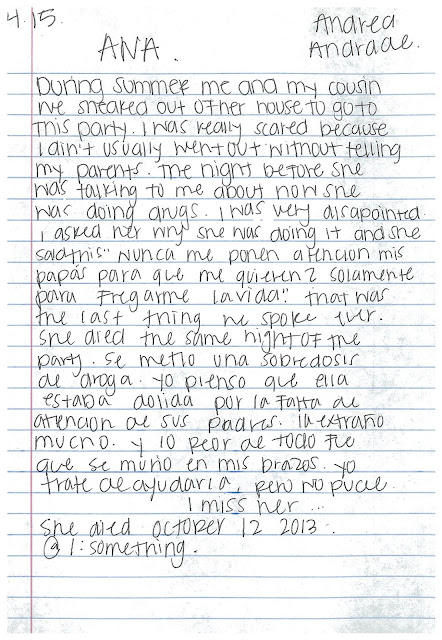 4.15.
Andrea
Andrade.
ANA.
During summer me and my cousin
we sneaked out of her house to go to
this party. I was really scared because
I din't usually went out without telling
my parents. The night before she
was talking to me about how she
was doing drugs. I was very disapointed.
I asked her why she was doing it and she
said this " Nunca me ponen atencion mis
papás para que me quieren? solamente
para fregarme la vida". that was
the last thing we spoke ever.
She died the same night of the
party. Se metio una sobredosis
de droga. yo pienso que ella
estaba dolida por la falta de
atencion de sus padres. la extraño
mucho. y lo peor de todo fue
que se murio en mis brazos. yo
trate de ayudarla, pero no pude.
I miss her ...
She died october 12 2013.
@ 1: something.